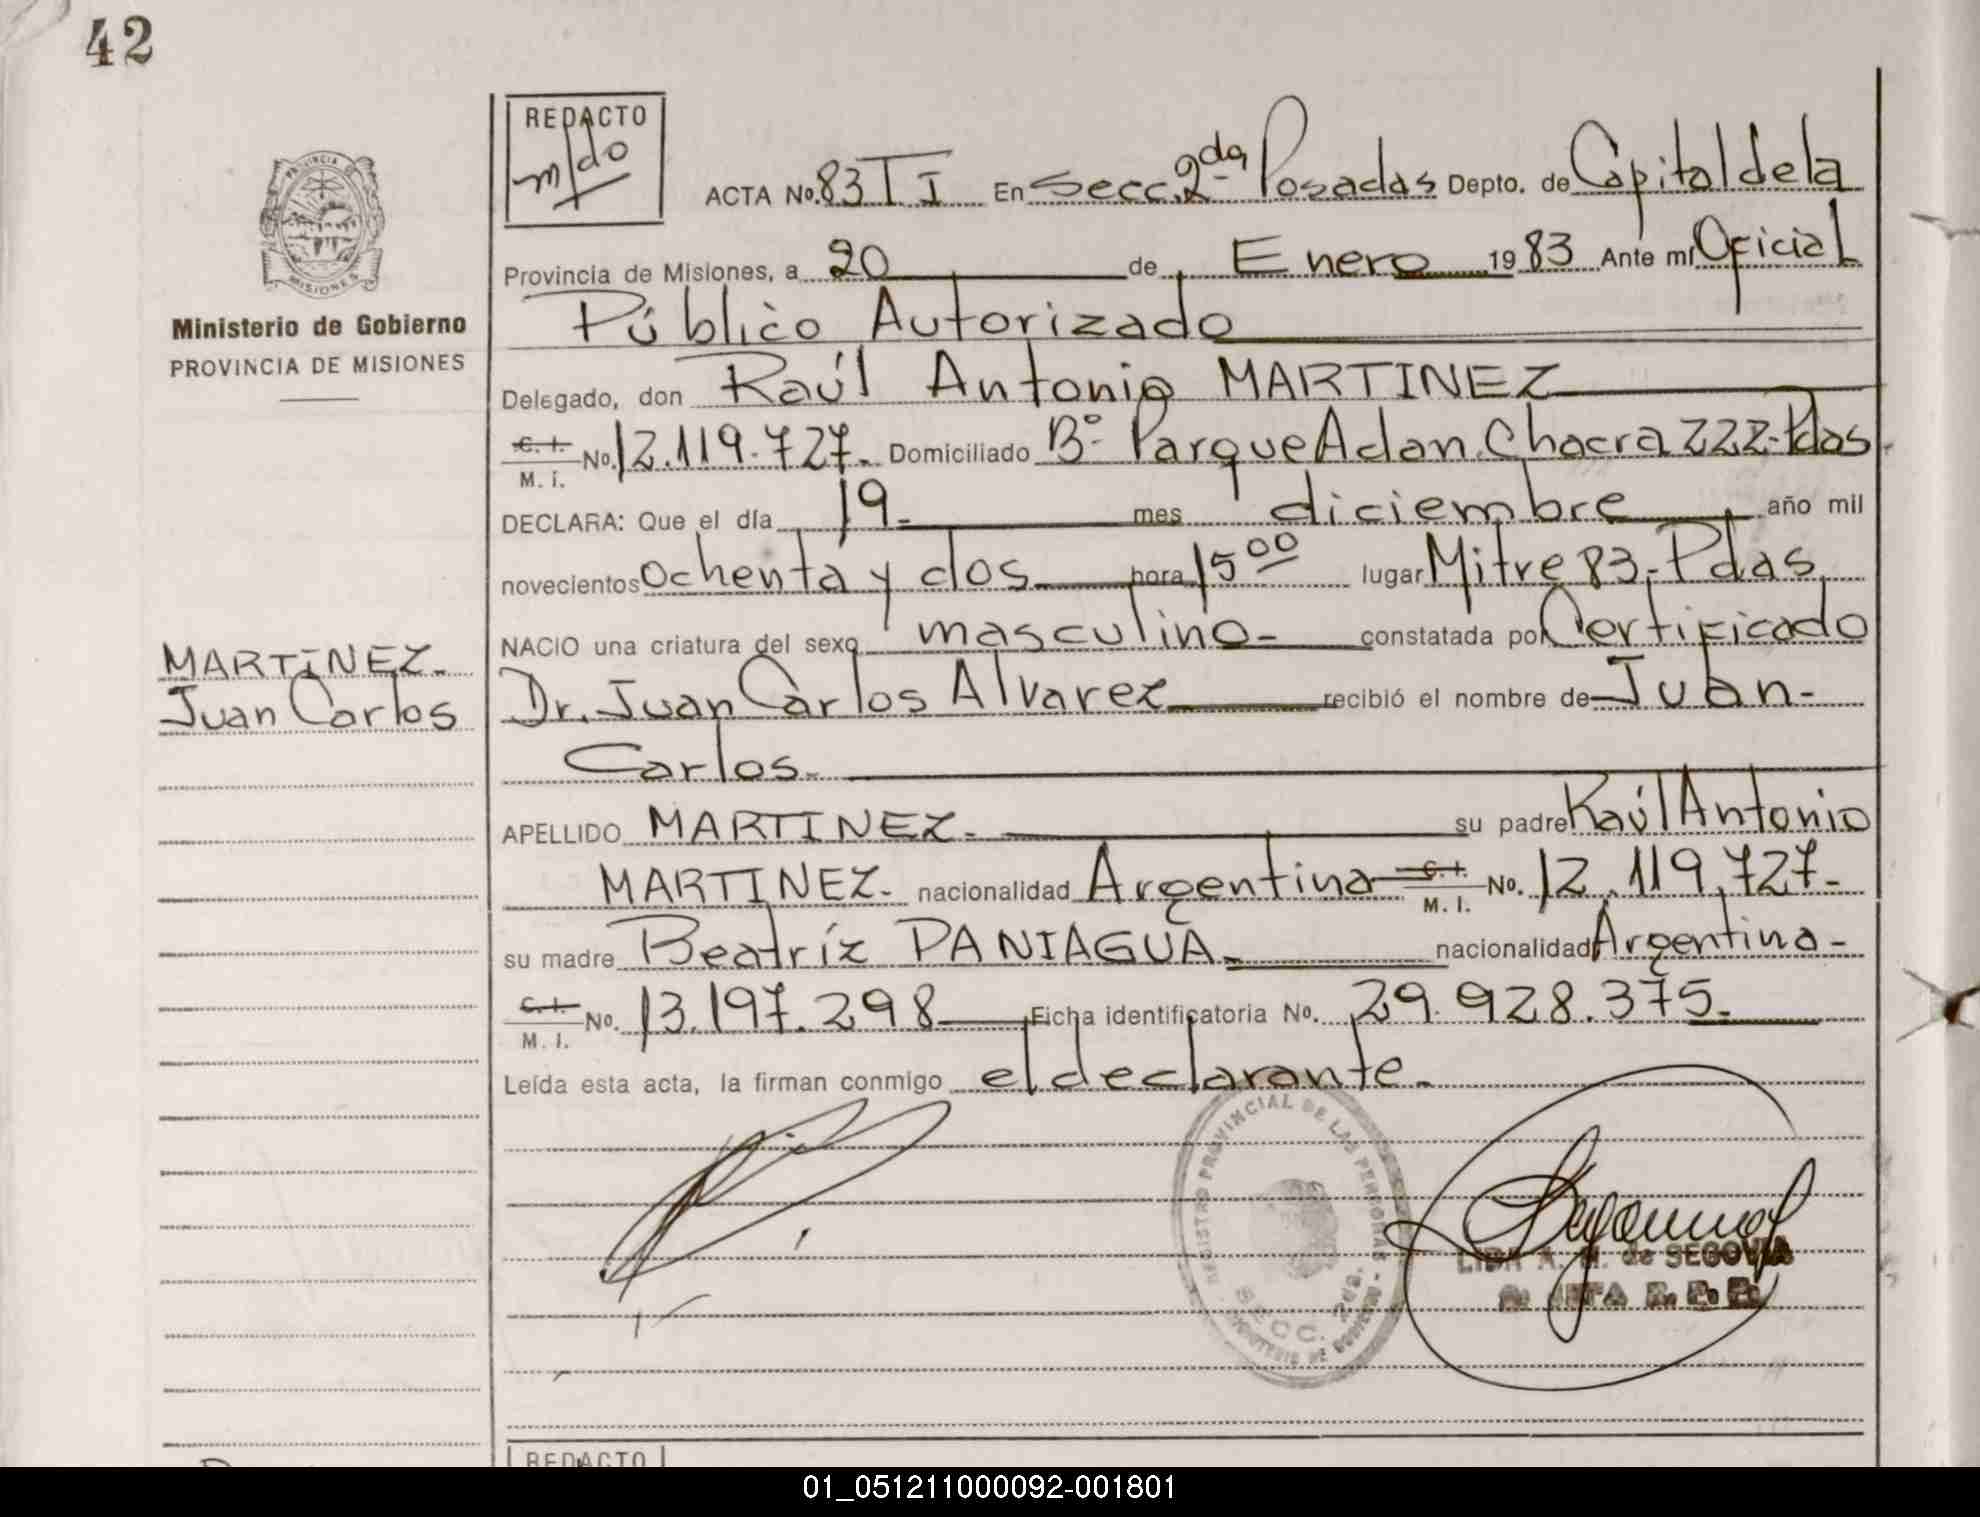 42
REDACTO
m/do
ACTA No. 83 T I En Secc. 2da Posadas Depto. de Capital de la
Provincia de Misiones, a 20 de Enero 1983 Ante mí Oficial
Público Autorizado
Ministerio de Gobierno
PROVINCIA DE MISIONES
Delegado, don Raúl Antonio MARTINEZ
C. I. M. I. No. 12.119.727. Domiciliado Bº Parque Adan Chacra 222-Pdas.
DECLARA: Que el día 19- mes diciembre año mil
novecientos ochenta y dos hora 15 00 lugar Mitre 83-Pdas
NACIO una criatura del sexo masculino- constatada por Certificado
MARTINEZ-
Juan Carlos
Dr. Juan Carlos Alvarez recibió el nombre de Juan-
Carlos-
APELLIDO MARTINEZ- su padre Raúl Antonio
MARTINEZ- nacionalidad Argentina C. I. M. I. No. 12.119.727-
su madre Beatríz PANIAGUA- nacionalidad Argentina-
C. I. M. I. No. 13.197.298 Ficha identificatoria No. 29.928.375-
Leída esta acta, la firman conmigo el declarante-
REGISTRO PROVINCIAL DE LAS PERSONAS
SECC. 2da.
MINISTERIO DE GOBIERNO
LIDA A. de SEGOVIA
JEFA
REDACTO
01_051211000092-001801